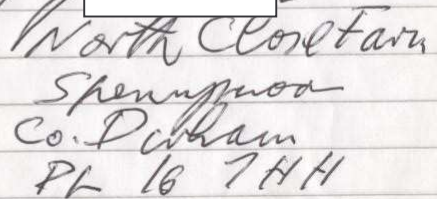 North Close Farm
Spennymoor
Co. Durham
PL 16 7HH